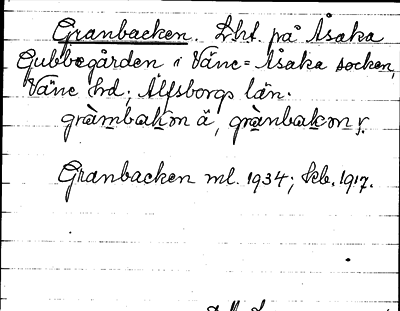 Granbacken. Lht. på Åsaka
Gubbegården i Väne-Åsaka socken,
Väne hd; Älfsborgs län.
gràmbakon ä, grànbakon y.
Granbacken ml. 1934; skb. 1917.